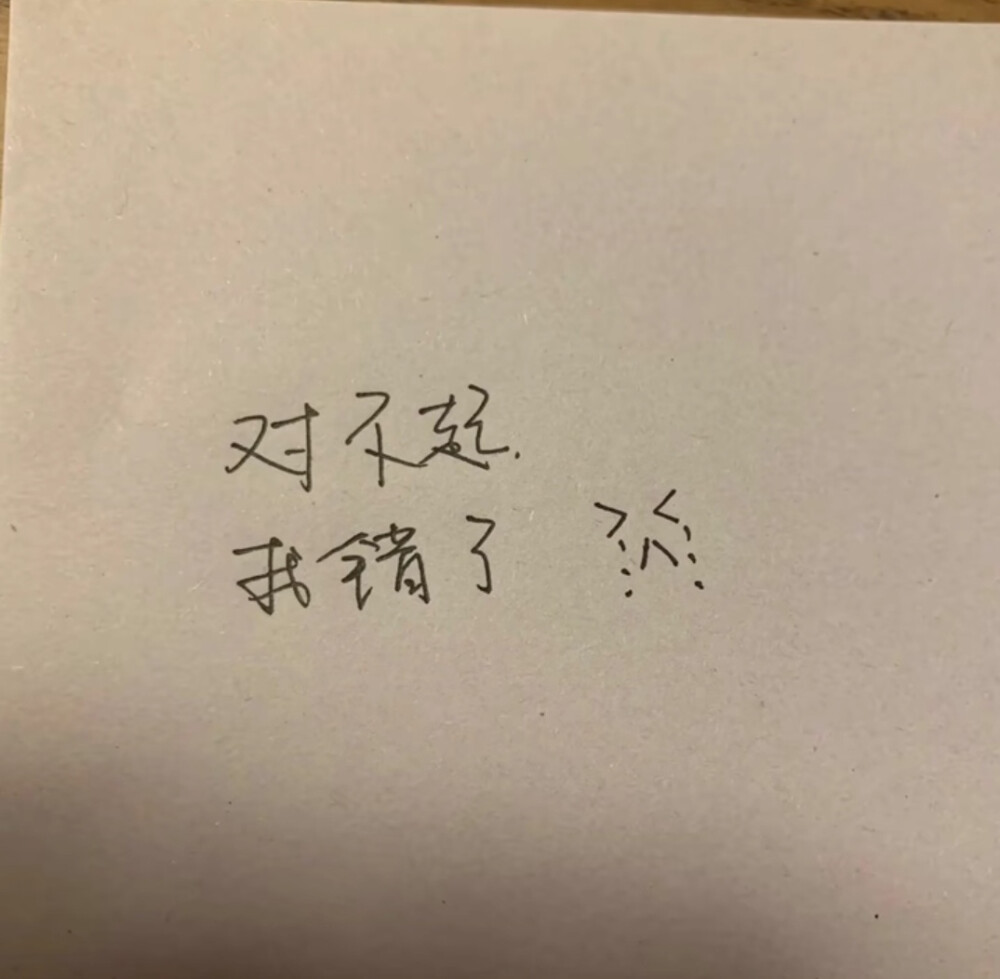 对不起.
我错了